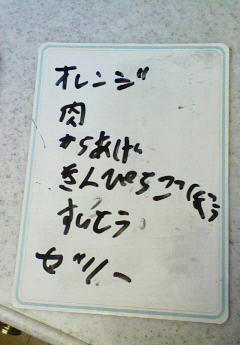 オレンジ
肉
からあげ
きんぴらごぼう
すいとう
ゼリー